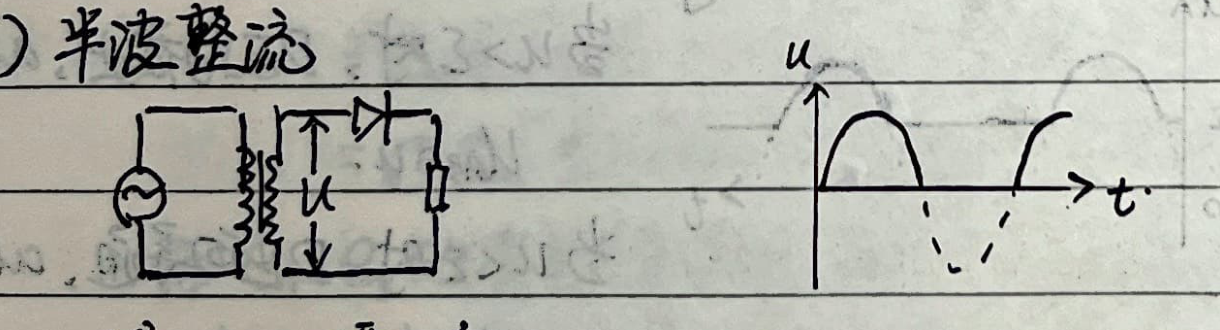 ) 半波整流
u
U
t.